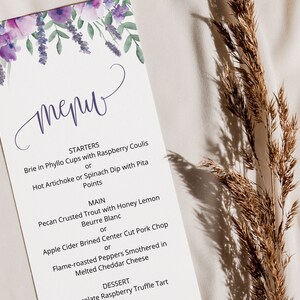 menu
STARTERS
Brie in Phyllo Cups with Raspberry Coulis
or
Hot Artichoke or Spinach Dip with Pita
Points
MAIN
Pecan Crusted Trout with Honey Lemon
Beurre Blanc
or
Apple Cider Brined Center Cut Pork Chop
or
Flame-roasted Peppers Smothered in
Melted Cheddar Cheese
DESSERT
Raspberry Truffle Tart